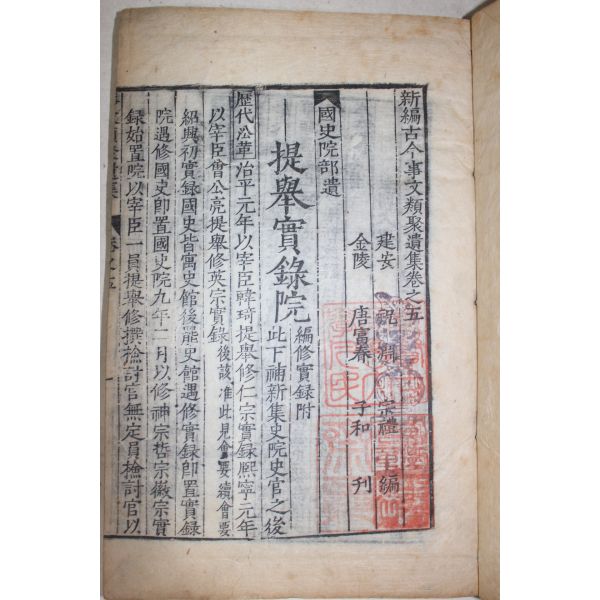 新編古今事文類聚遺集卷之五
建安 祝淵 宗禮 編
金陵 唐富春 子和 刊
國史院部遺
提舉實錄院 編修實錄附
此下補新集史院史官之後
歷代沿革 治平元年以宰臣韓琦提舉修仁宗實錄熙寧元年
以宰臣曾公亮提舉修英宗實錄 後該准此見會要續會要
紹興初實錄國史皆寓史館後罷史館遇修實錄即置實錄
院遇修國史即置國史院九年二月以修神宗哲宗徽宗實
録始置院以宰臣一員提舉修撰檢討官無定員檢討官以
卷之五